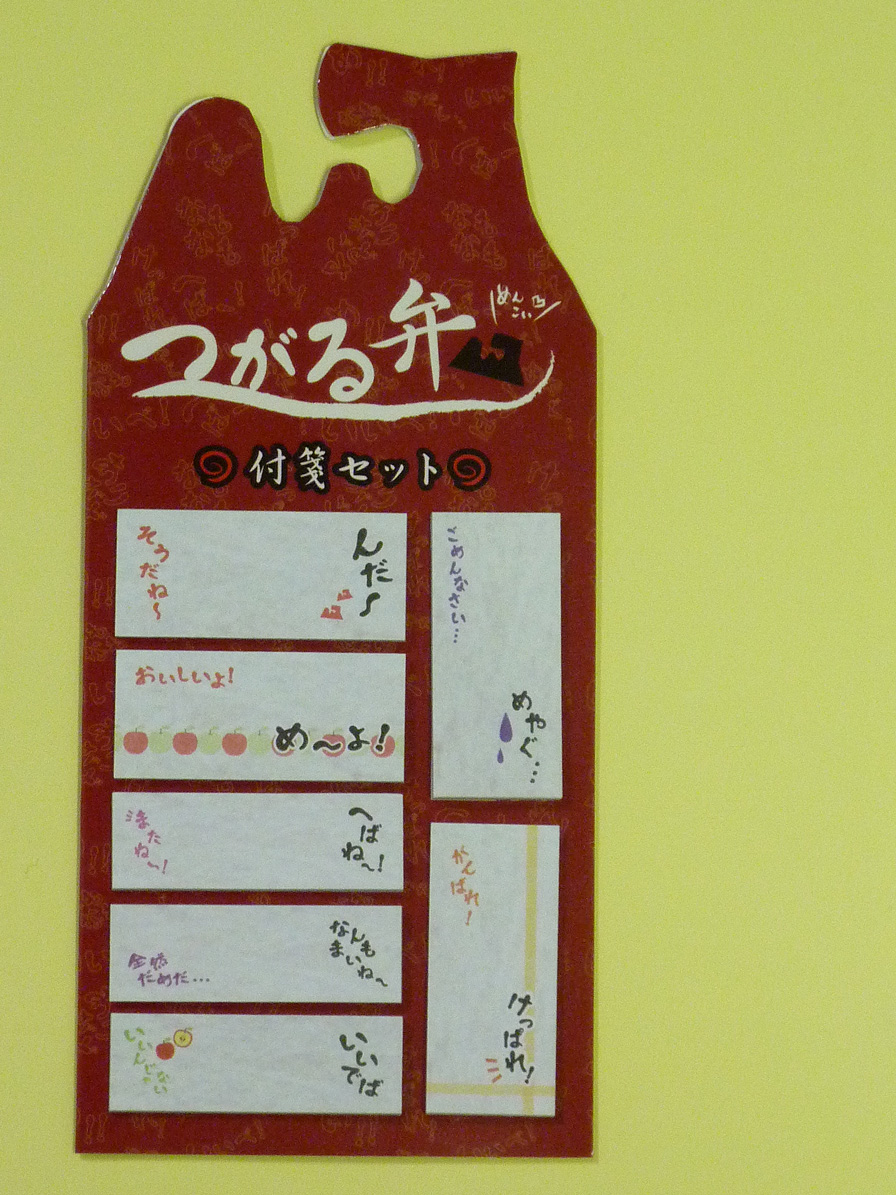 つがる弁
めんこい
付箋セット
そうだね〜
んだ〜
おいしいよ!
め〜よ!
まったね〜!
へばね〜!
全然
だめだ…
なんも
まいね〜
いいんじゃない
いいでば
ごめんなさい…
めやぐ…
がんばれ!
けっぱれ!